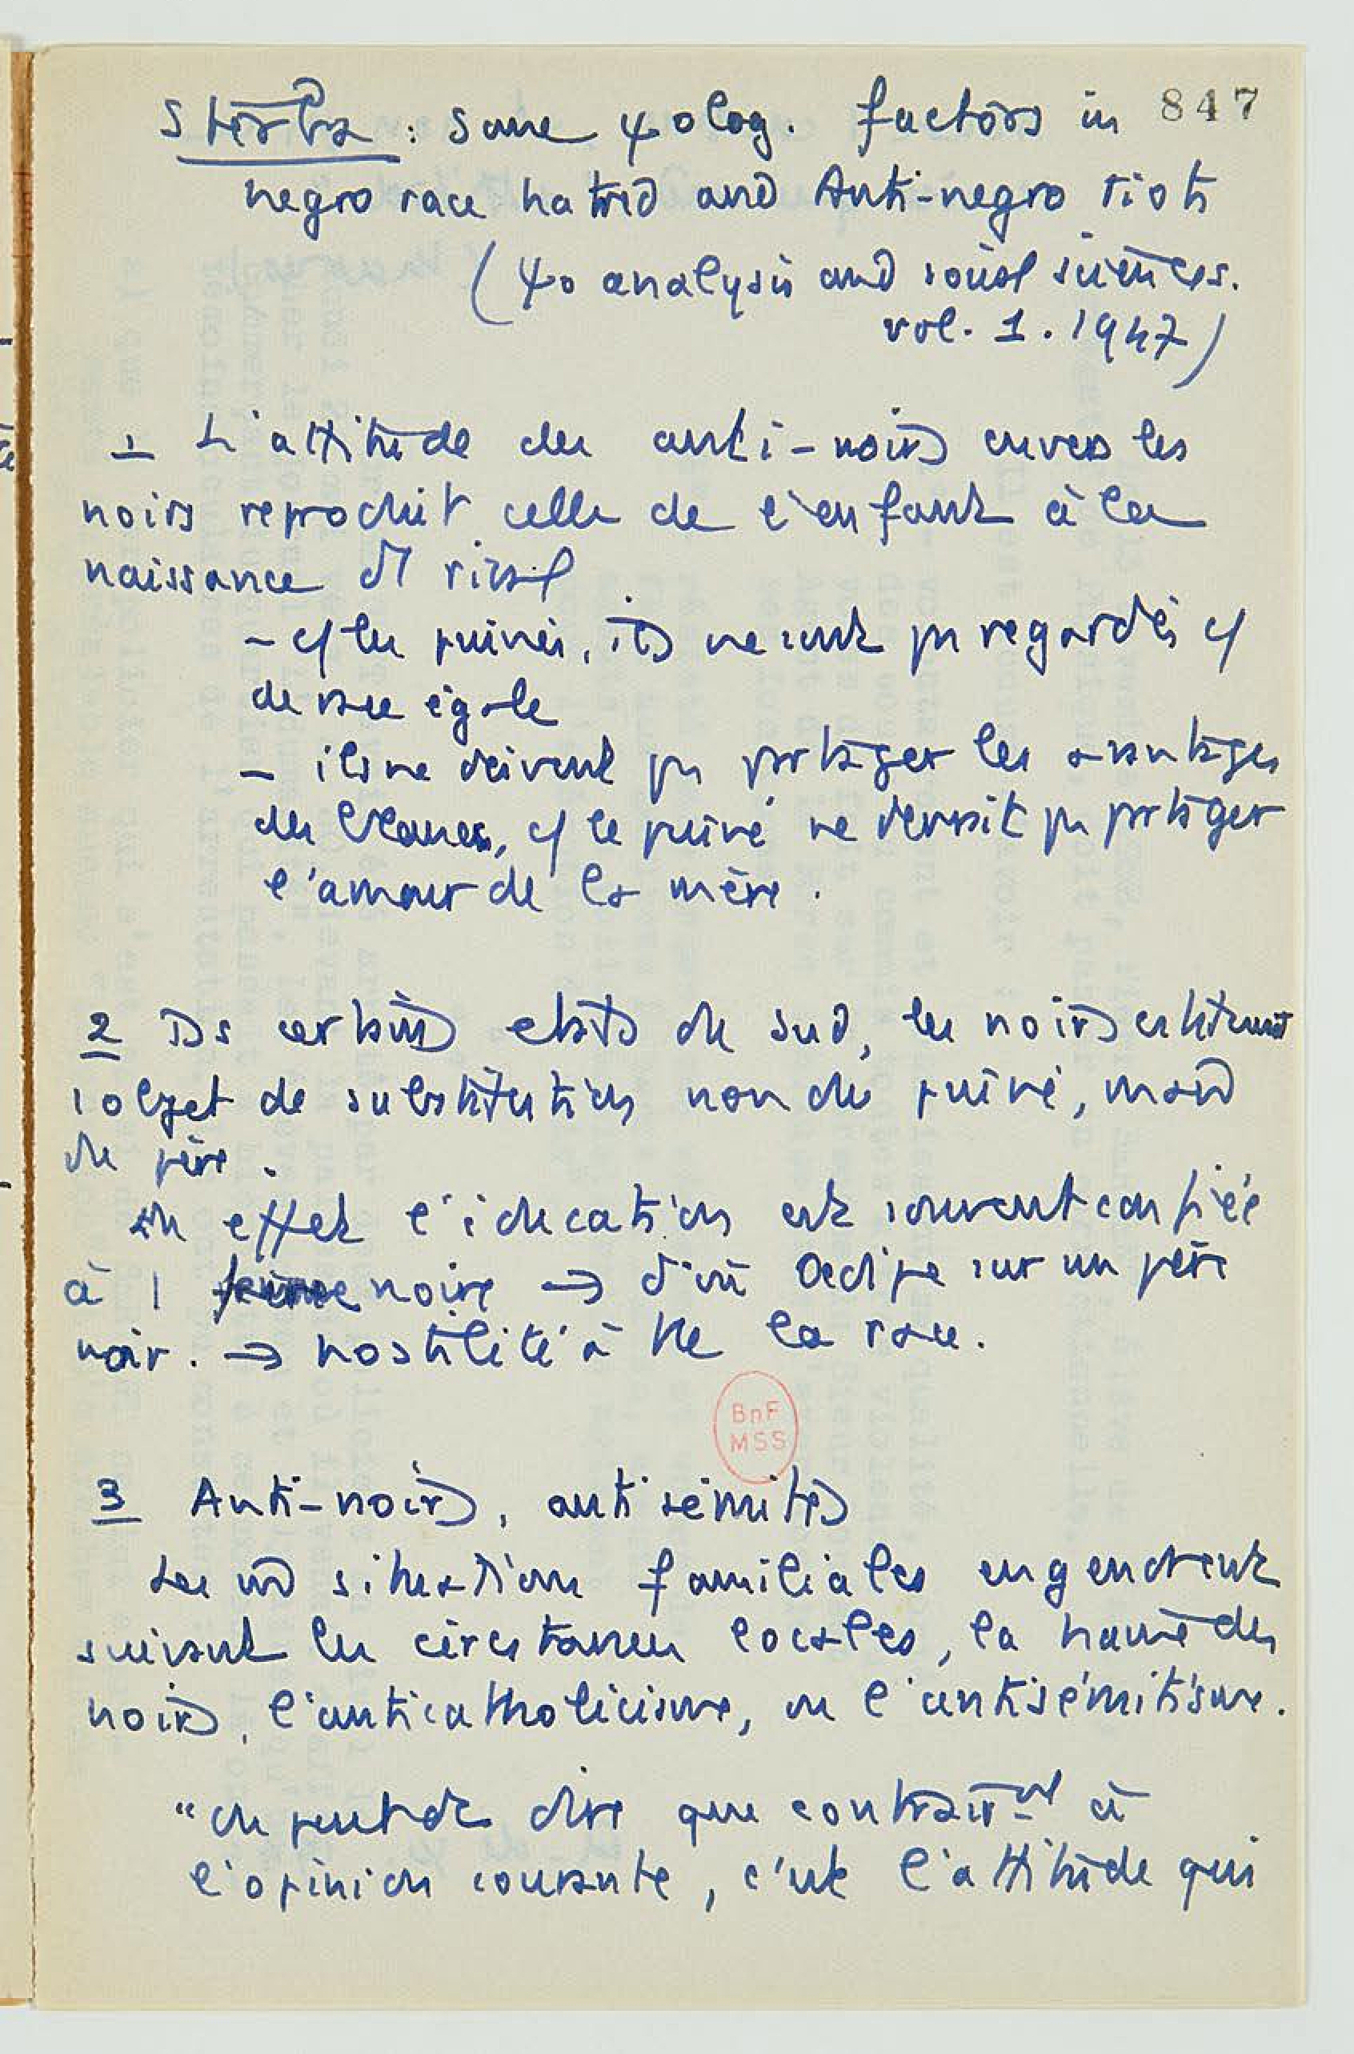 847
Sterba : Some ψolog. factors in
negro race hatred and Anti-negro riots
(ψo analysis and social sciences.
vol. 1. 1947)
1 L'attitude des anti-noirs envers les
noirs reproduit celle de l'enfant à la
naissance d'1 rival
- c/ les puinés, ils ne sont pas regardés c/
de race égale
- ils ne doivent pas partager les avantages
des blancs, c/ le puiné ne devrait pas partager
l'amour de la mère.
2 Ds certains etats du sud, les noirs
1 objet de substitution non du puiné, mais
du père.
En effet l'éducation est souvent confiée
à 1 noire → d'où Oedipe sur un père
noir. → hostilité à tte la race.
BnF
MSS
3 Anti-noirs, antisémites
Les situations familiales engendrent
suivant les circstances locales, la haine des
noirs, l'anticatholicisme, ou l'antisémitisme.
"On peut dc dire que contrairt à
l'opinion courante, c'est l'attitude qui